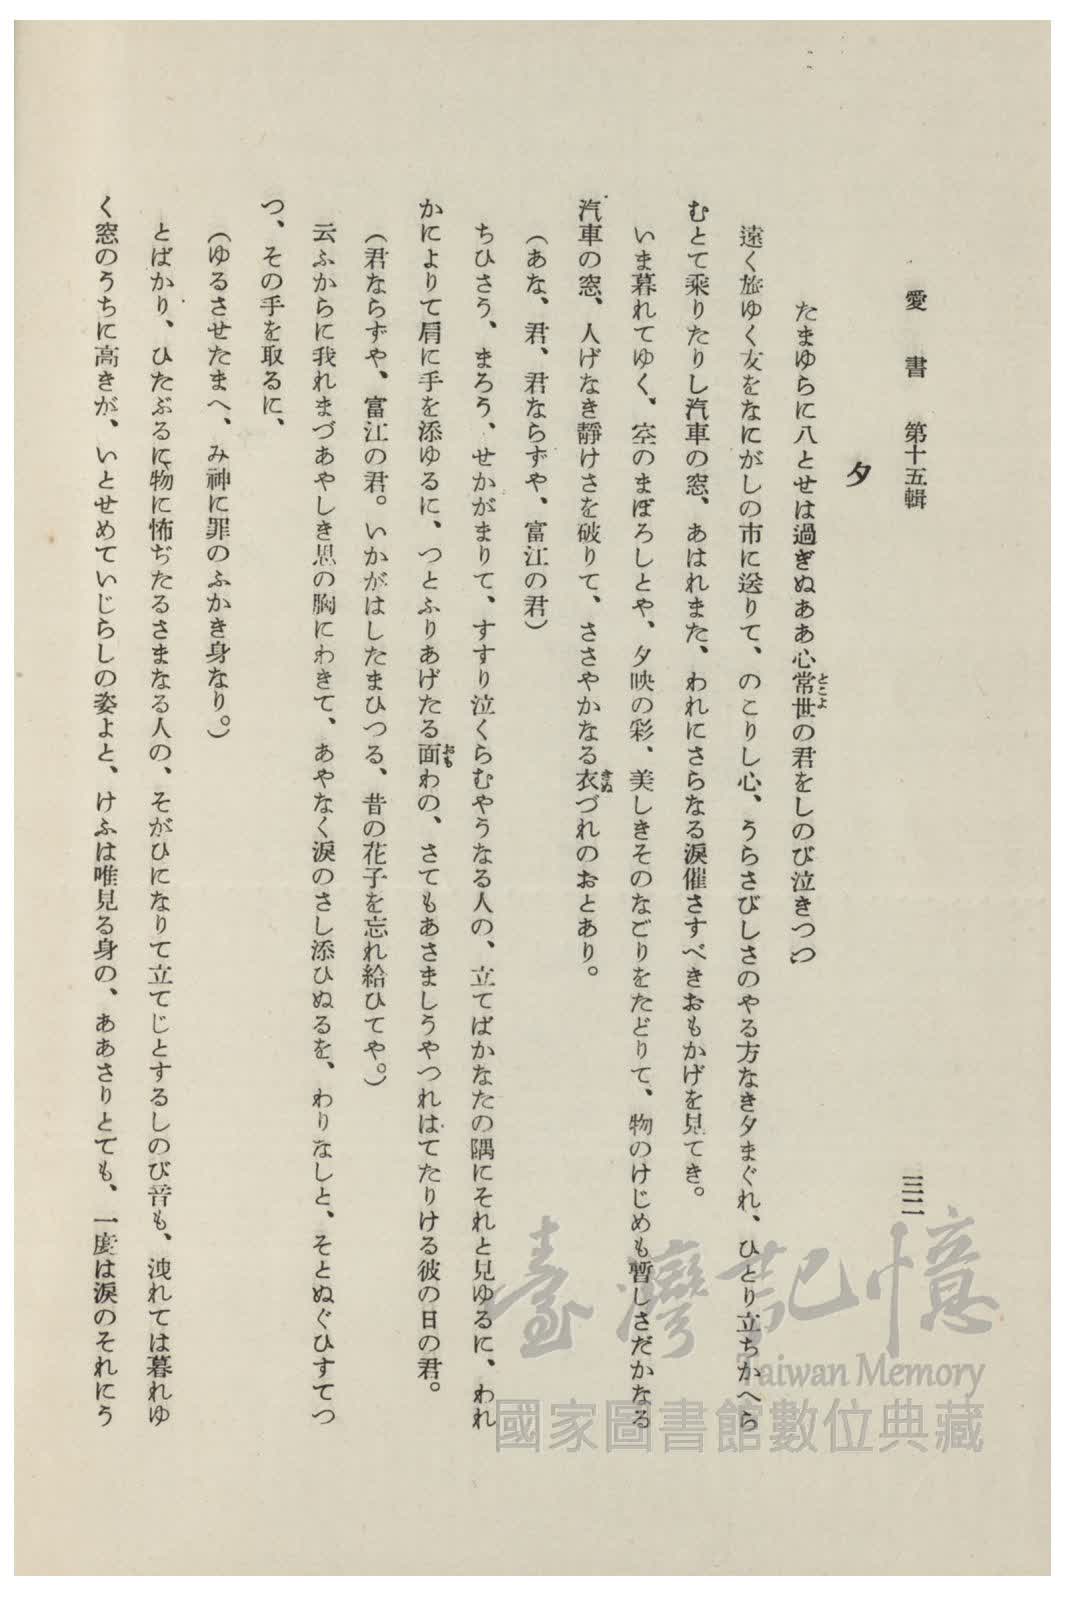 愛書 第十五輯
三二
夕
たまゆらに八とせは過ぎぬああ心常世の君をしのび泣きつつ
とこよ
遠く旅ゆく友をなにがしの市に送りて、のこりし心、うらさびしさのやる方なき夕まぐれ、ひとり立ちかへら
むとて乘りたりし汽車の窓、あはれまた、われにさらなる淚催さすべきおもかげを見てき。
いま暮れてゆく、空のまぼろしとや、夕映の彩、美しきそのなごりをたどりて、物のけじめも暫しさだかなる
汽車の窓、人げなき靜けさを破りて、ささやかなる衣づれのおとあり。
きぬ
(あな、君、君ならずや、富江の君)
ちひさう、まろう、せかがまりて、すすり泣くらむやうなる人の、立てばかなたの隅にそれと見ゆるに、われ
かによりて肩に手を添ゆるに、つとふりあげたる面わの、さてもあさましうやつれはてたりける彼の日の君。
おも
(君ならずや、富江の君。いかがはしたまひつる、昔の花子を忘れ給ひてや。)
云ふからに我れまづあやしき思の胸にわきて、あやなく淚のさし添ひぬるを、わりなしと、そとぬぐひすてつ
つ、その手を取るに、
(ゆるさせたまへ、み神に罪のふかき身なり。)
とばかり、ひたぶるに物に怖ぢたるさまなる人の、そがひになりて立てじとするしのび音も、洩れては暮れゆ
く窓のうちに高きが、いとせめていじらしの姿よと、けふは唯見る身の、ああさりとても、一度は淚のそれにう
臺灣記憶
Taiwan Memory
國家圖書館數位典藏